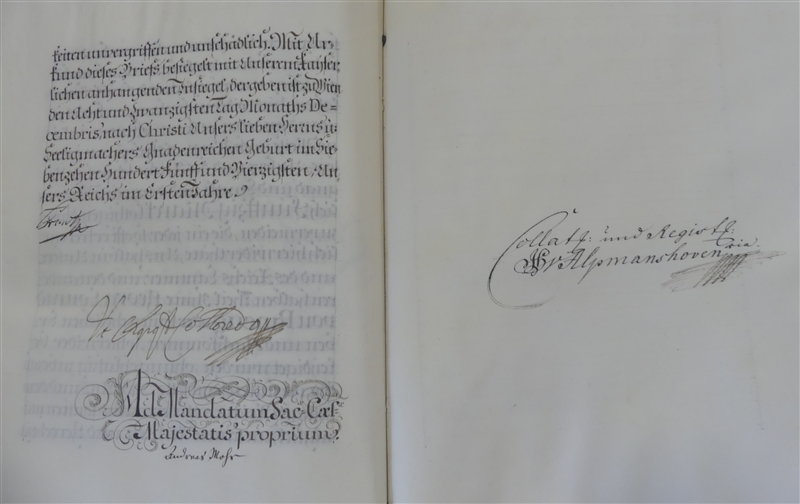 keiten unvergriffen und unschädlich. Mit Ur-
kund dieses Briefs besiegelt mit Unserem Kayser-
lichen anhangenden Insiegel, der geben ist zu Wien
den Acht und zwanzigsten Tag Monaths De=
cembris, nach Christi Unsers lieben Herrns u:
Seeligmachers Gnadenreichen Geburt im Sie-
benzehen Hundert Fünff und Vierzigsten, Un-
sers Reichs im Ersten Jahre.
Frantz
Vt Colloredo
Ad Mandatum Sac: Cæs:
Majestatis proprium.
Andreas Mohr
Collatt: und Registt:
v Alpmanshoven